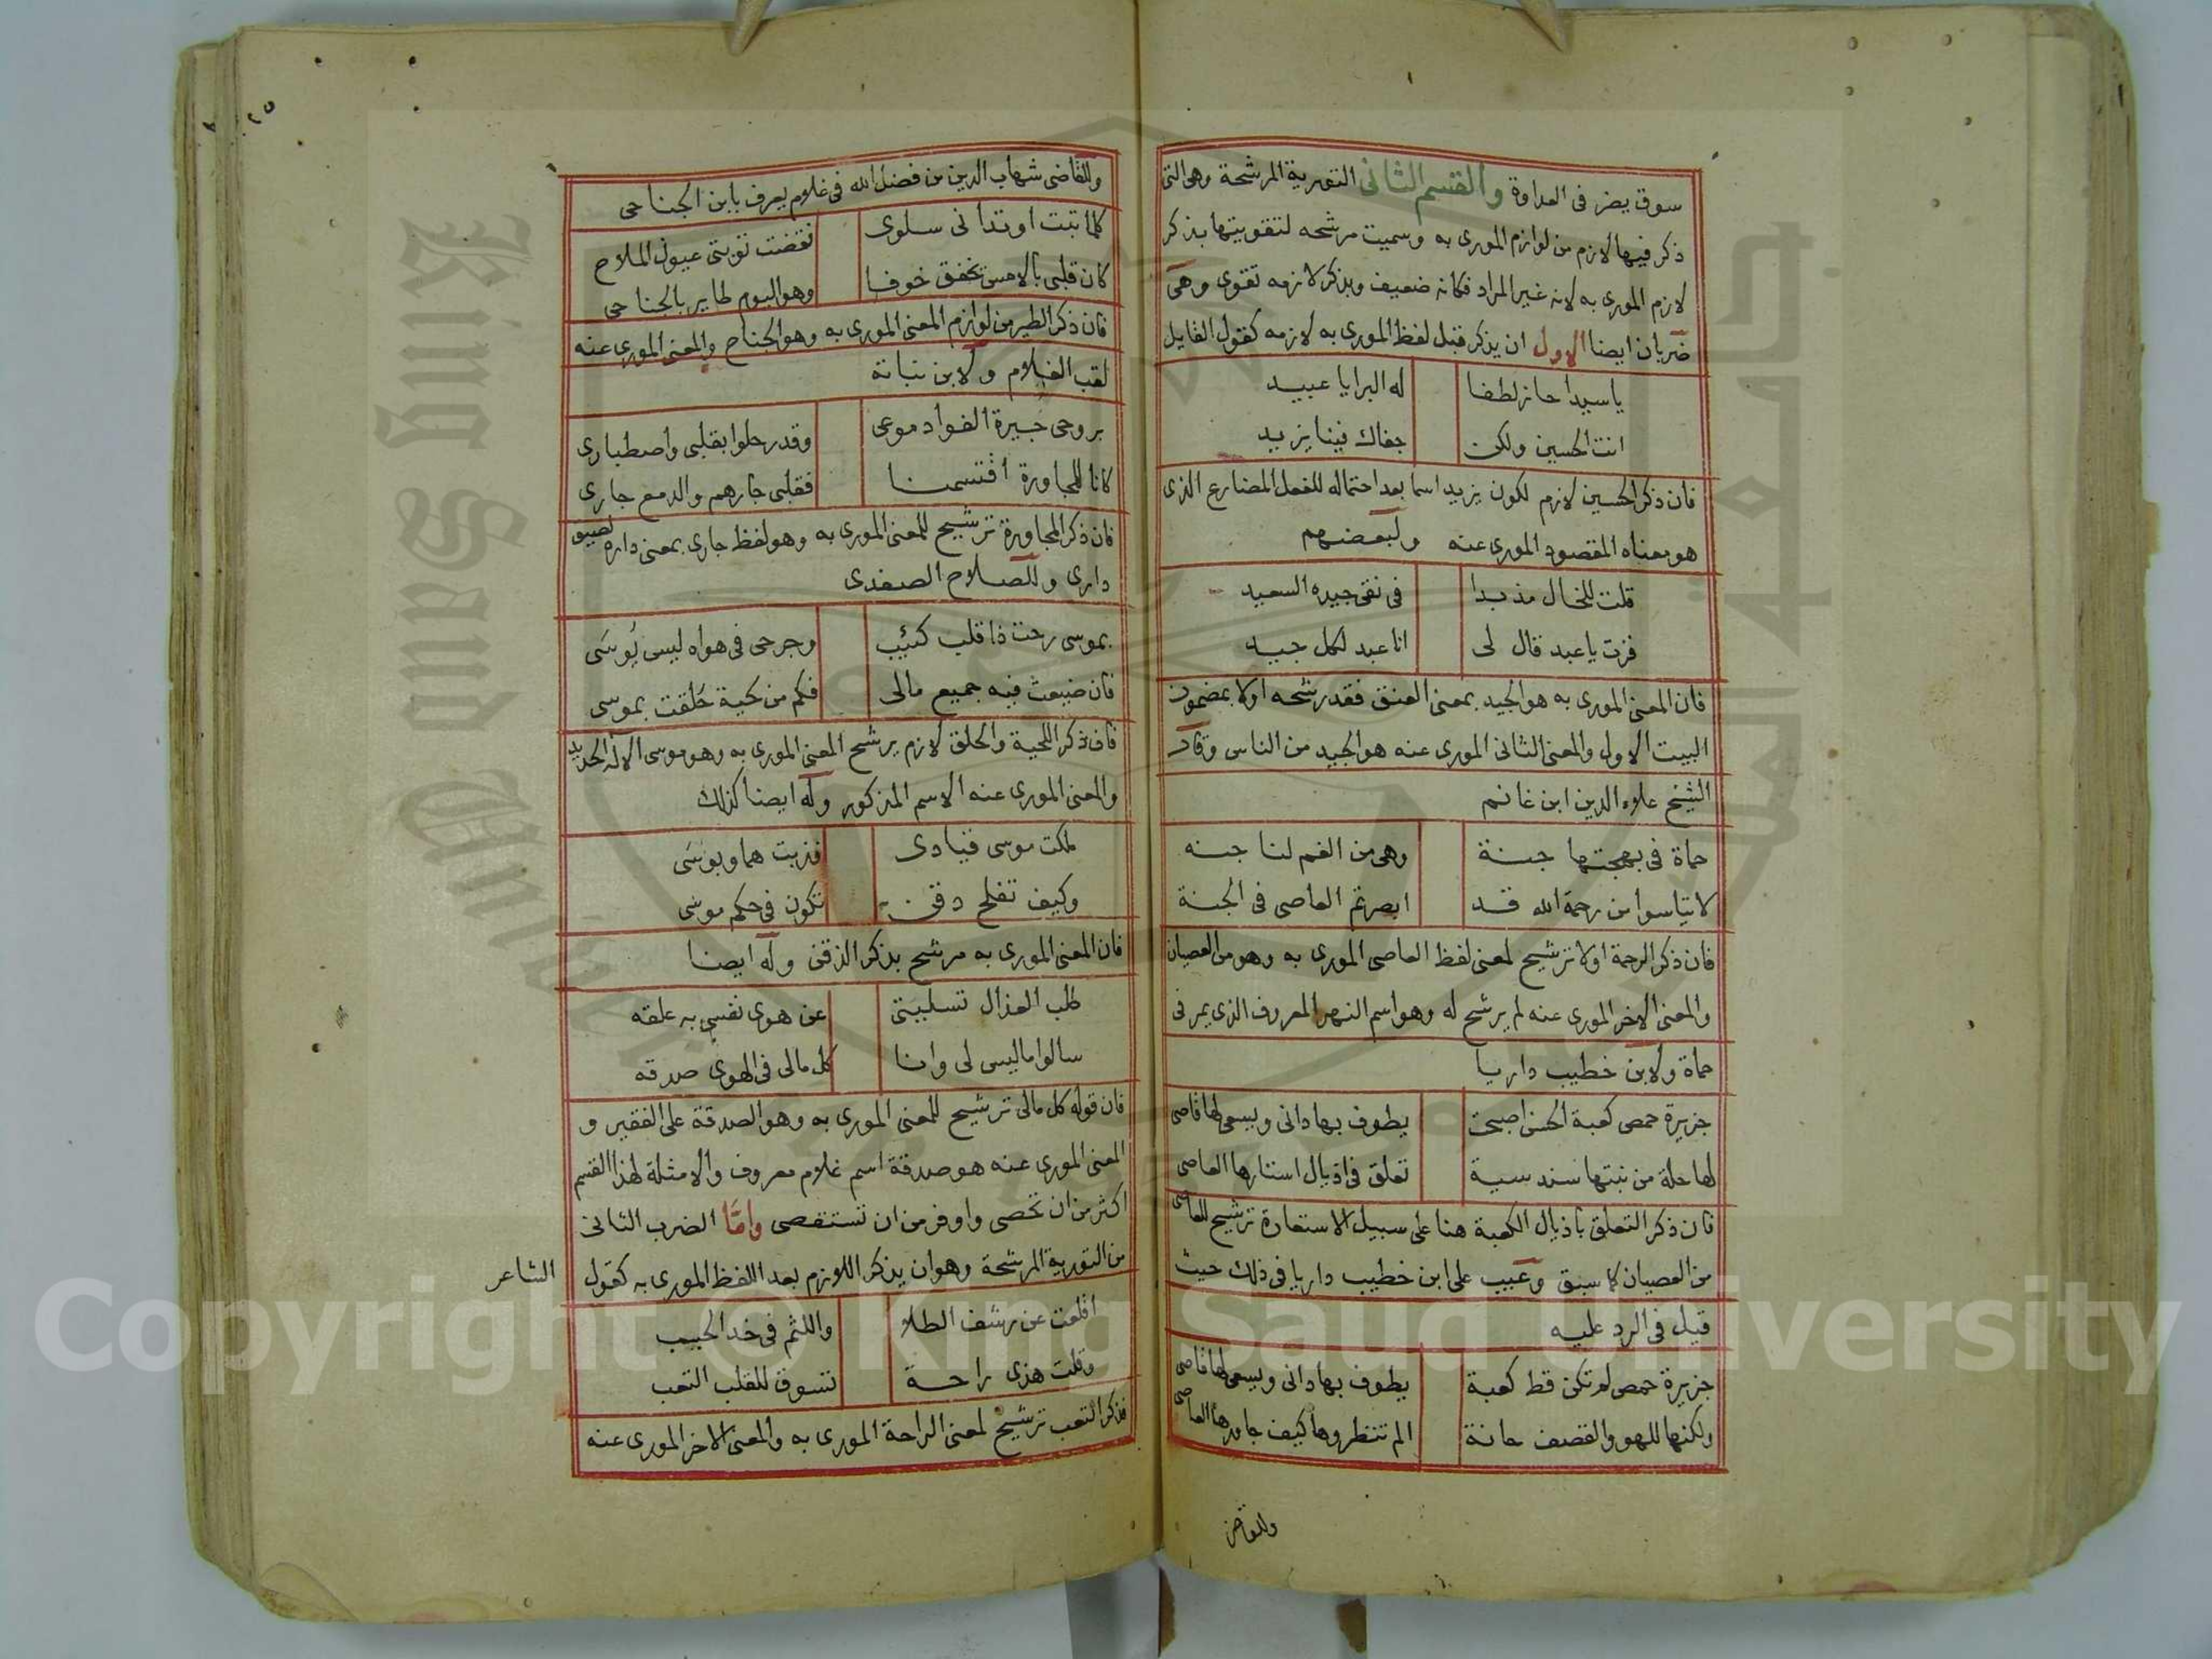 سوق يضر فى العداوة والقسم الثانى التورية المرشحة وهى التى
ذكر فيها لازم من لوازم المورى به وسميت مرشحه لتقويتها بذكر
لازم المورى به لانه غير المراد فكانه ضعيف وبذكر لازمه تقوى وهى
ضربان ايضا الاول ان يذكر قبل لفظ المورى به لازمه كقول القايل
ياسيدا حاز لطفا له البرايا عبيد
انت الحسين ولكن جفاك فينا يزيد
فان ذكر الحسين لازم لكون يزيد اسما بعد احتماله للفعل المضارع الذى
هو بمعناه المقصود المورى عنه ولبعضهم
قلت للخال مذ بدا فى نقى جيده السعيد
فزت يا عبد قال لى انا عبد لكل جيد
فان المعنى المورى به هو الجيد بمعنى العنق فقد رشحه اولا بمضمون
البيت الاول والمعنى الثانى المورى عنه هو الجيد من الناس وقال
الشيخ علاء الدين ابن غانم
حماة فى بهجتها جنة وهى من الغم لنا جنه
لا تيئاسوا من رحمة الله قد ابصرتم العاصى فى الجنة
فان ذكر الرحمة اولا ترشيح لمعنى لفظ العاصى المورى به وهو من العصيان
والمعنى الاخر المورى عنه لم يرشح له وهو اسم النهر المعروف الذى يمر فى
حماة ولابن خطيب داريا
جزيرة حمص كعبة الحسن اصبحت يطوف بها دانى ويسعى لها قاصى
لها حلة من نبتها سندسية تعلق فى اذيال استارها العاصى
فان ذكر التعلق باذيال الكعبة هنا على سبيل الاستعارة ترشيح للعاصى
من العصيان كما سبق وعيب على ابن خطيب داريا فى ذلك حيث
قيل فى الرد عليه
جزيرة حمص لم تكن قط كعبة يطوف بها دانى ويسعى لها قاصى
ولكنها للهو والقصف حانة الم تنظروها كيف جاورها العاصى
وللقاضى
وللقاضى شهاب الدين من فضل الله فى غلام يعرف بابن الجناحى
كلما تبت او تدانى سلوى نقضت توبتى عيون الملاح
كان قلبى بالامس يخفق خوفا وهو اليوم طاير بالجناحى
فان ذكر الطير من لوازم المعنى المورى به وهو الجناح والمعنى المورى عنه
لقب الغلام ولابن نباتة
بروحى جيرة الفوا دموعى وقد رحلوا بقلبى واصطبارى
كانا للمجاورة اقتسمنا فقلبى جارهم والدمع جارى
فان ذكر المجاورة ترشيح للمعنى المورى به وهو لفظ جارى بمعنى داره لصيق
دارى وللصلاح الصفدى
بموسى رحت ذا قلب كئيب وجرحى فى هواه ليس يُوسَى
فان ضيعت فيه جميع مالى فكم من لحية حلقت بموسى
فان ذكر اللحية والحلق لازم يرشح المعنى المورى به وهو موسى الالة الحديد
والمعنى المورى عنه الاسم المذكور وله ايضا كذلك
ملكت موسى قيادى فذبت هما وبوسَى
وكيف تفلح دقن تكون فى حكم موسى
فان المعنى المورى به مرشح بذكر الذقن وله ايضا
طلب العذال تسليتى عن هوى نفسي به علقه
سالوا ماليس لى وانا كل مالى فى الهوى صدقه
فان قوله كل مالى ترشيح للمعنى المورى به وهو الصدقة على الفقير و
المعنى المورى عنه هو صدقة اسم غلام معروف والامثلة لهذا القسم
اكثر من ان تحصى واوفر من ان تستقصى وامَّا الضرب الثانى
من التورية المرشحة وهو ان يذكر اللوازم بعد اللفظ المورى به كقول الشاعر
اقلعت عن رشف الطلا واللثم فى خد الحبيب
وقلت هذى راحة تسوق للقلب التعب
فذكر التعب ترشيح لمعنى الراحة المورى به والمعنى الاخر المورى عنه
King Saud University
Copyright © King Saud University